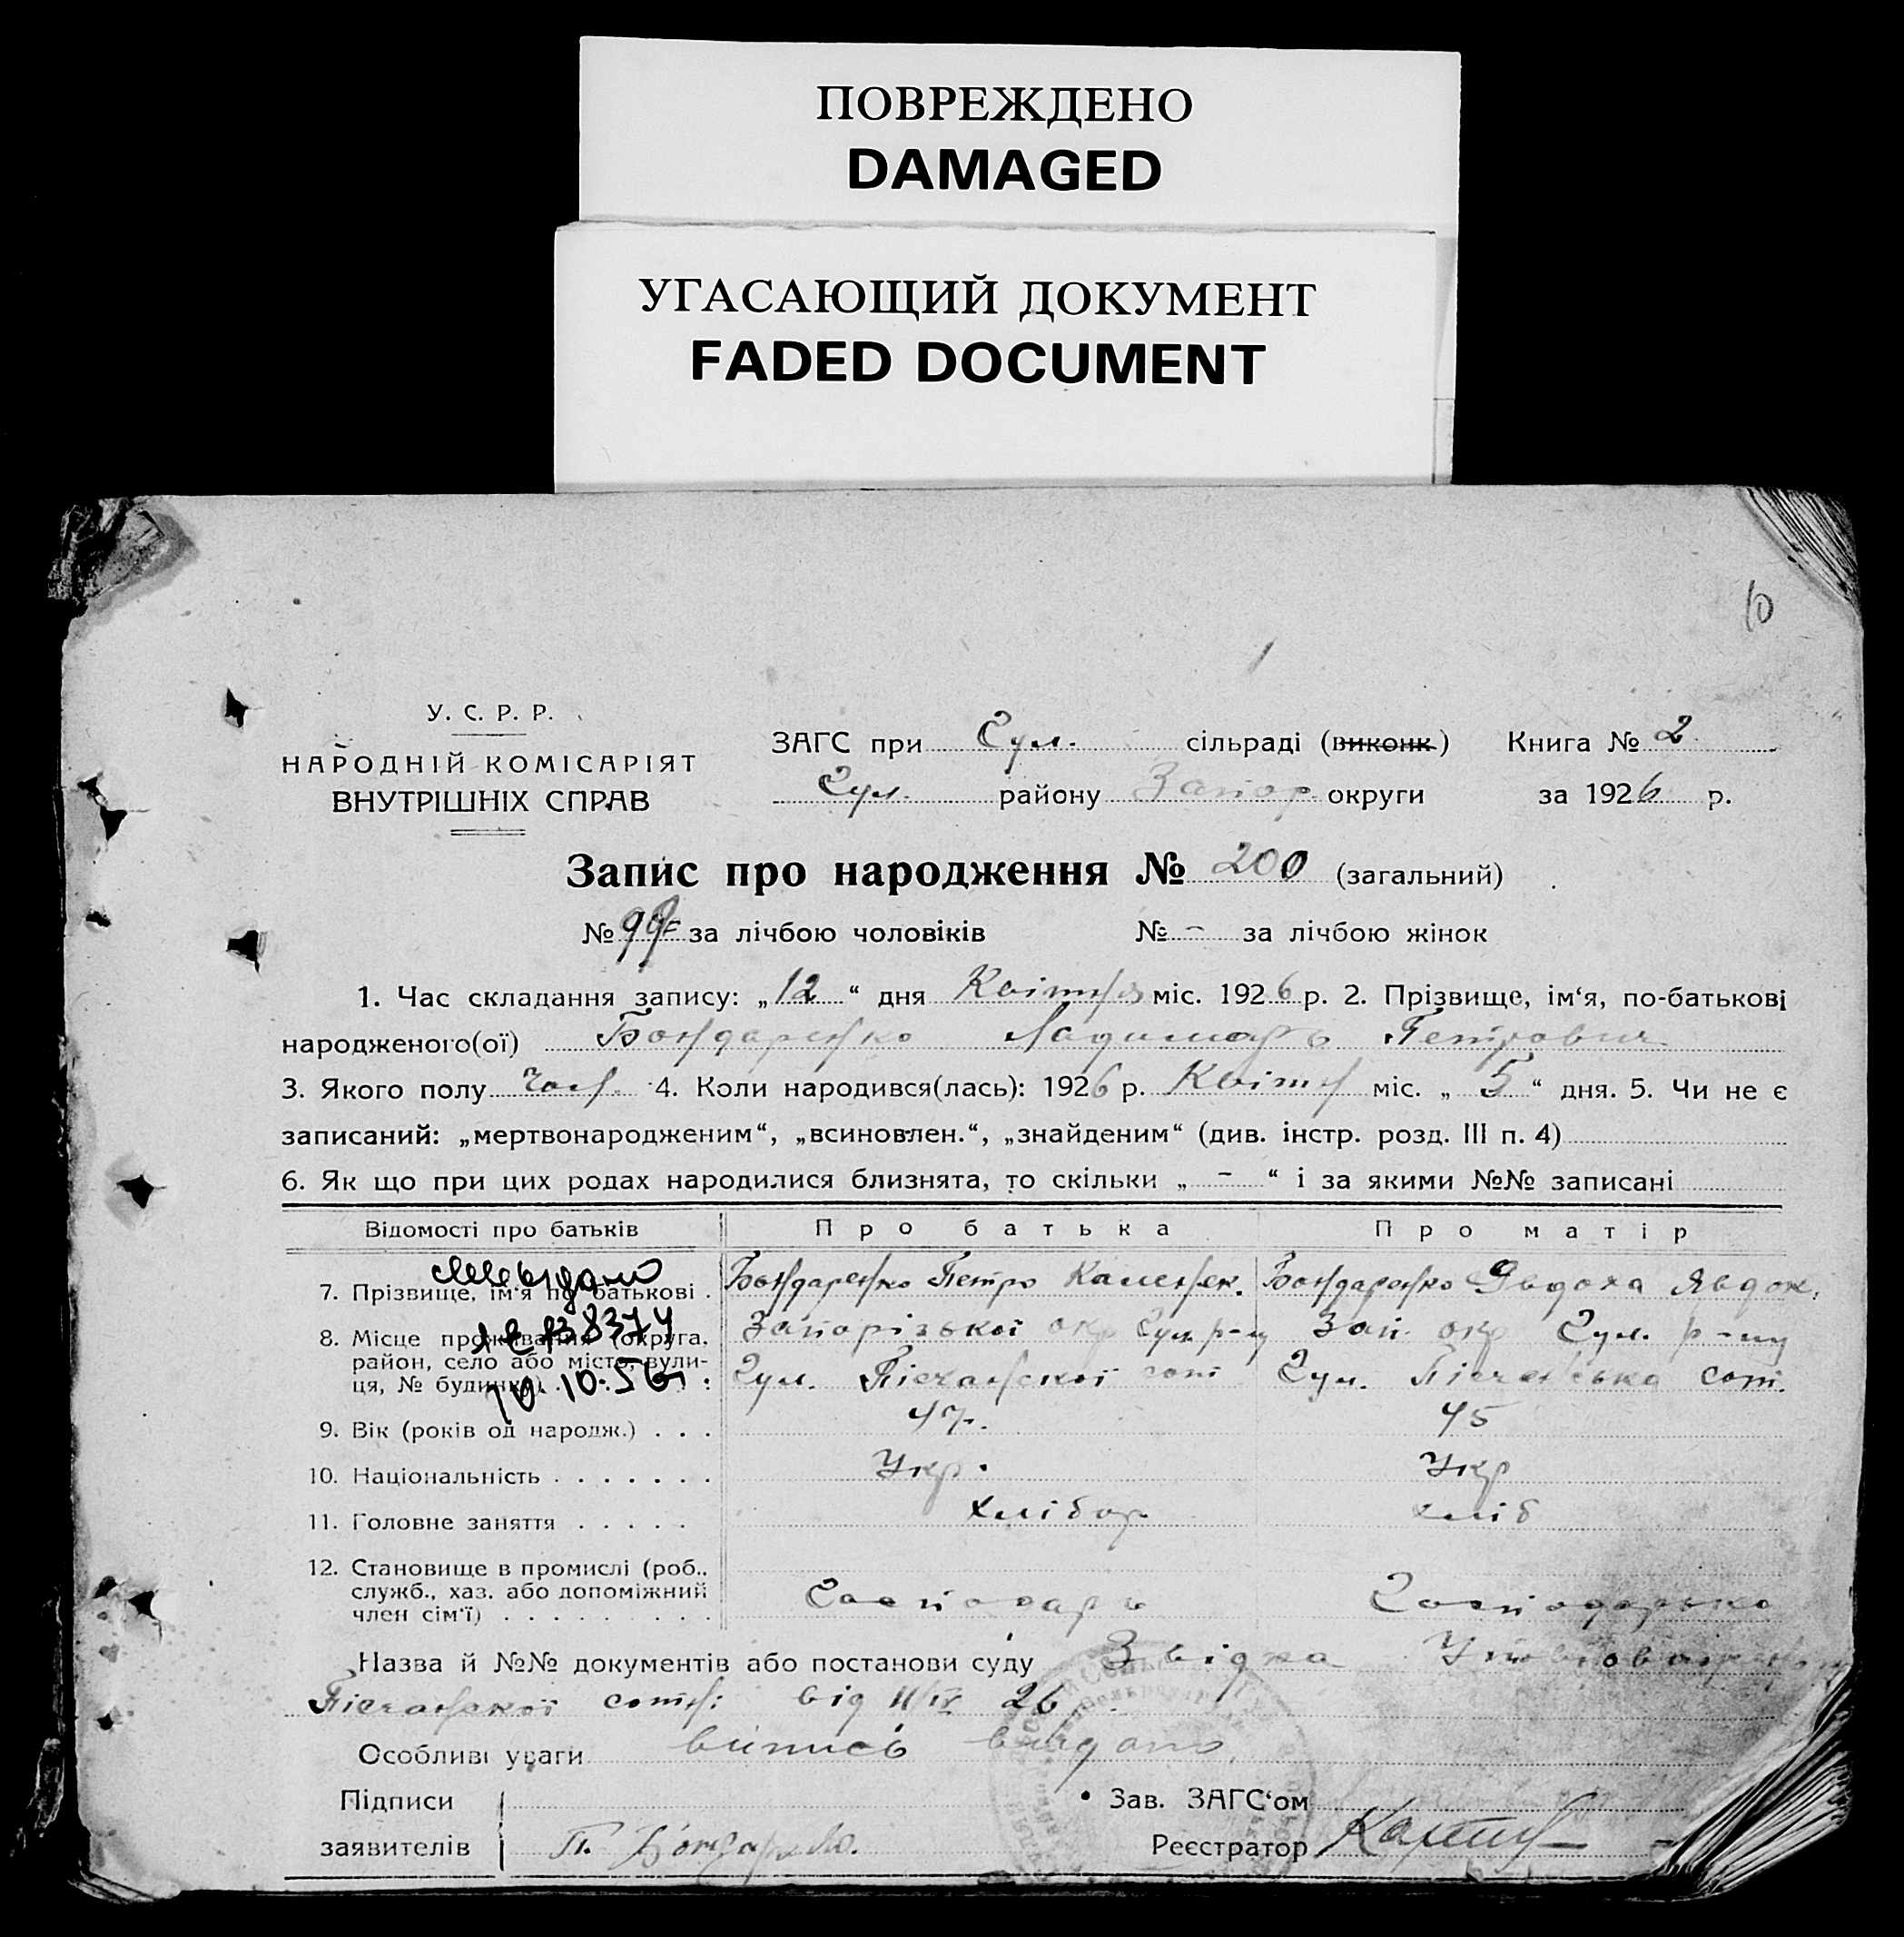 ПОВРЕЖДЕНО
DAMAGED
УГАСАЮЩИЙ ДОКУМЕНТ
FADED DOCUMENT
10
У. С. Р. Р.
НАРОДНІЙ КОМІСАРІЯТ
ВНУТРІШНІХ СПРАВ
ЗАГС при Гул. сільраді (виконк.) Книга № 2
Гул. району Запор. округи за 1926 р.
Запис про народження № 200 (загальний)
№ 99 за лічбою чоловіків № – за лічбою жінок
1. Час складання запису: „12“ дня Квітня міс. 1926 р. 2. Прізвище, ім‘я, по-батькові
народженого(ої) Бондаренко Петрович
3. Якого полу чол. 4. Коли народився(лась): 1926 р. Квітн міс. „5“ дня. 5. Чи не є
записаний: „мертвонародженим“, „всиновлен.“, „знайденим“ (див. інстр. розд. III п. 4)
6. Як що при цих родах народилися близнята, то скільки „ – “ і за якими №№ записані
Відомості про батьків Про батька Про матір
7. Прізвище, ім‘я по батькові . Бондаренко Петро Бондаренко Явдоха Явдок.
8. Місце проживання (округа, Запорізької окр Гул. р-ну Зап. окр Гул. р-ну
район, село або місто, вули-
ця, № будинка) . Гул. Пісчанської сот Гул. Пісчанська сот.
10.56
9. Вік (років од народж.) . . . 47. 45
10. Національність . . . . . . . Укр. Укр
11. Головне заняття . . . . . хлібор хліб
12. Становище в промислі (роб.,
служб., хаз. або допоміжний
член сім‘ї) . . . . . . . . . Господарь Господарька
Назва й №№ документів або постанови суду Звідка
Пісчанської сотн: від 11/IV 26
Особливі уваги випись видано
Підписи
заявителів П. Бондаренко.
Зав. ЗАГС‘ом
Реєстратор